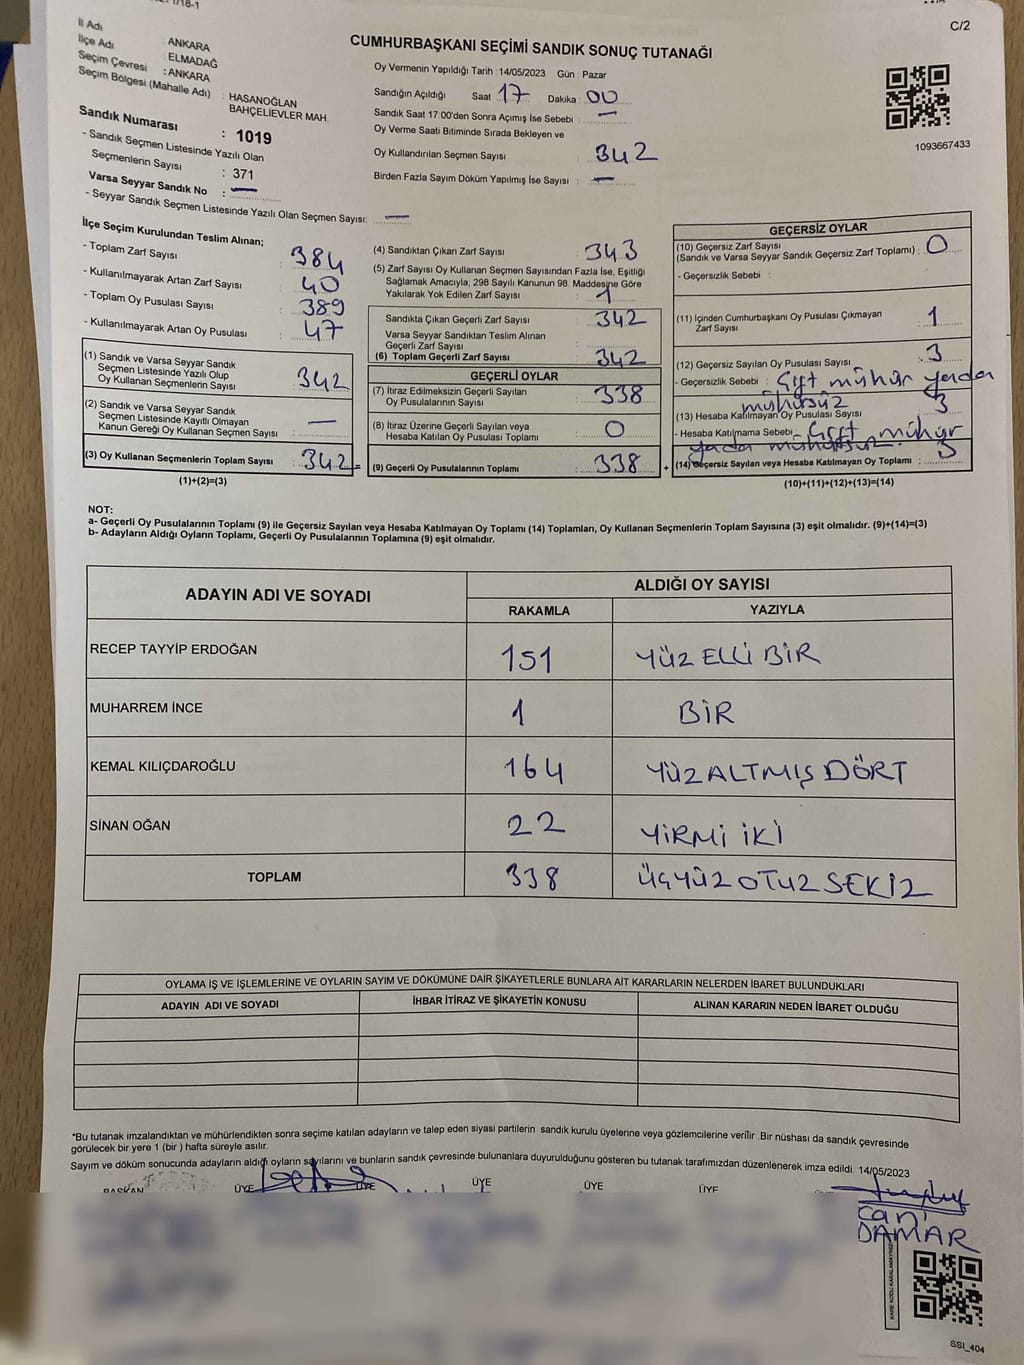 1/18-1
C/2
İl Adı
İlçe Adı : ANKARA
Seçim Çevresi : ELMADAĞ
Seçim Bölgesi (Mahalle Adı) : ANKARA
: HASANOĞLAN
BAHÇELİEVLER MAH.
Sandık Numarası : 1019
- Sandık Seçmen Listesinde Yazılı Olan
Seçmenlerin Sayısı : 371
Varsa Seyyar Sandık No : —
- Seyyar Sandık Seçmen Listesinde Yazılı Olan Seçmen Sayısı: —
CUMHURBAŞKANI SEÇİMİ SANDIK SONUÇ TUTANAĞI
Oy Vermenin Yapıldığı Tarih : 14/05/2023 Gün : Pazar
Sandığın Açıldığı Saat 17 Dakika : 00
Sandık Saat 17:00'den Sonra Açımış İse Sebebi : —
Oy Verme Saati Bitiminde Sırada Bekleyen ve
Oy Kullandırılan Seçmen Sayısı : 342
Birden Fazla Sayım Döküm Yapılmış İse Sayısı : —
1093667433
İlçe Seçim Kurulundan Teslim Alınan;
- Toplam Zarf Sayısı : 384
- Kullanılmayarak Artan Zarf Sayısı : 40
- Toplam Oy Pusulası Sayısı : 389
- Kullanılmayarak Artan Oy Pusulası : 47
(1) Sandık ve Varsa Seyyar Sandık
Seçmen Listesinde Yazılı Olup
Oy Kullanan Seçmenlerin Sayısı : 342
(2) Sandık ve Varsa Seyyar Sandık
Seçmen Listesinde Kayıtlı Olmayan
Kanun Gereği Oy Kullanan Seçmen Sayısı : —
(3) Oy Kullanan Seçmenlerin Toplam Sayısı : 342 =
(1)+(2)=(3)
(4) Sandıktan Çıkan Zarf Sayısı : 343
(5) Zarf Sayısı Oy Kullanan Seçmen Sayısından Fazla İse, Eşitliği
Sağlamak Amacıyla, 298 Sayılı Kanunun 98. Maddesine Göre
Yakılarak Yok Edilen Zarf Sayısı : 1
Sandıkta Çıkan Geçerli Zarf Sayısı : 342
Varsa Seyyar Sandıktan Teslim Alınan
Geçerli Zarf Sayısı :
(6) Toplam Geçerli Zarf Sayısı : 342
GEÇERLİ OYLAR
(7) İtiraz Edilmeksizin Geçerli Sayılan
Oy Pusulalarının Sayısı : 338
(8) İtiraz Üzerine Geçerli Sayılan veya
Hesaba Katılan Oy Pusulası Toplamı : 0
(9) Geçerli Oy Pusulalarının Toplamı : 338 +
GEÇERSİZ OYLAR
(10) Geçersiz Zarf Sayısı
(Sandık ve Varsa Seyyar Sandık Geçersiz Zarf Toplamı) : 0
- Geçersizlik Sebebi :
(11) İçinden Cumhurbaşkanı Oy Pusulası Çıkmayan
Zarf Sayısı : 1
(12) Geçersiz Sayılan Oy Pusulası Sayısı : 3
- Geçersizlik Sebebi : Çift mühür yada
mühürsüz
(13) Hesaba Katılmayan Oy Pusulası Sayısı 3
- Hesaba Katılmama Sebebi : Çift mühür
yada mühürsüz
(14) Geçersiz Sayılan veya Hesaba Katılmayan Oy Toplamı : 3
(10)+(11)+(12)+(13)=(14)
NOT:
a- Geçerli Oy Pusulalarının Toplamı (9) ile Geçersiz Sayılan veya Hesaba Katılmayan Oy Toplamı (14) Toplamları, Oy Kullanan Seçmenlerin Toplam Sayısına (3) eşit olmalıdır. (9)+(14)=(3)
b- Adayların Aldığı Oyların Toplamı, Geçerli Oy Pusulalarının Toplamına (9) eşit olmalıdır.
ADAYIN ADI VE SOYADI ALDIĞI OY SAYISI
RAKAMLA YAZIYLA
RECEP TAYYİP ERDOĞAN 151 YÜZ ELLİ BİR
MUHARREM İNCE 1 BİR
KEMAL KILIÇDAROĞLU 164 YÜZALTMIŞ DÖRT
SİNAN OĞAN 22 YİRMİ İKİ
TOPLAM 338 ÜÇYÜZ OTUZ SEKİZ
OYLAMA İŞ VE İŞLEMLERİNE VE OYLARIN SAYIM VE DÖKÜMÜNE DAİR ŞİKAYETLERLE BUNLARA AİT KARARLARIN NELERDEN İBARET BULUNDUKLARI
ADAYIN ADI VE SOYADI İHBAR İTİRAZ VE ŞİKAYETİN KONUSU ALINAN KARARIN NEDEN İBARET OLDUĞU
*Bu tutanak imzalandıktan ve mühürlendikten sonra seçime katılan adayların ve talep eden siyasi partilerin sandık kurulu üyelerine veya gözlemcilerine verilir .Bir nüshası da sandık çevresinde
görülecek bir yere 1 (bir ) hafta süreyle asılır.
Sayım ve döküm sonucunda adayların aldığı oyların sayılarını ve bunların sandık çevresinde bulunanlara duyurulduğunu gösteren bu tutanak tarafımızdan düzenlenerek imza edildi. 14/05/2023
BAŞKAN ÜYE ÜYE ÜYE ÜYE ÜYE
Cani
DAMAR
KARE KODU KARALAMAYINIZ
SSI_404